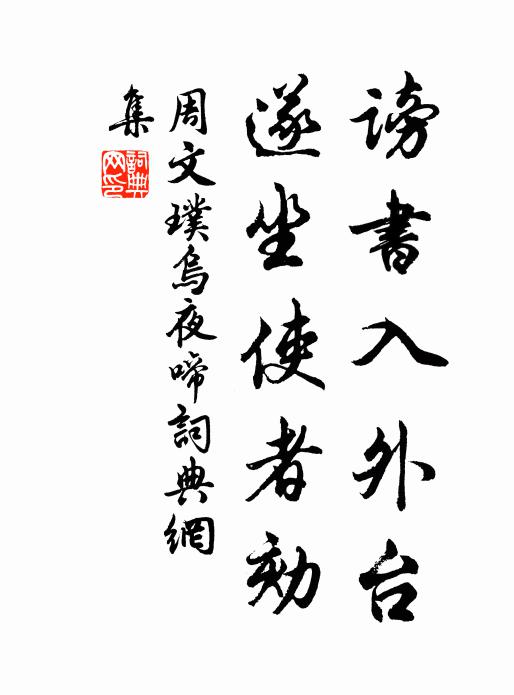 謗書入外台
遂坐使者劾
周文璞烏夜啼詞典網
集
詞典
网印